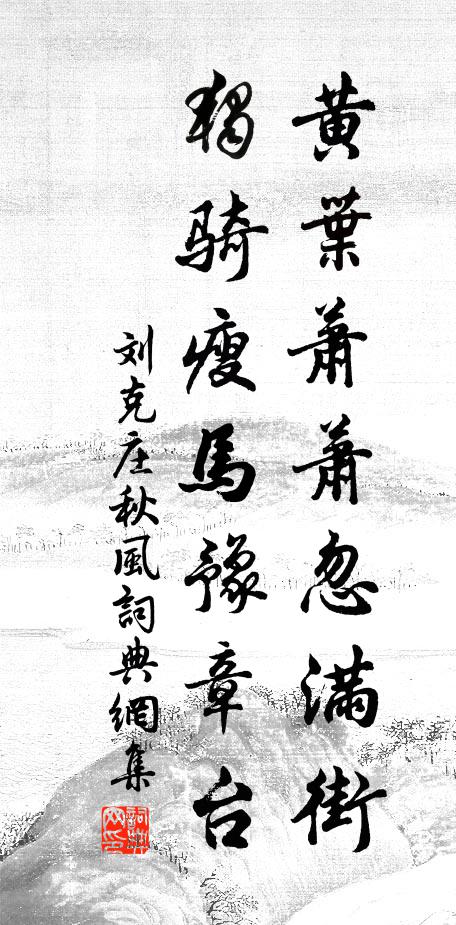 黄葉蕭蕭忽滿街
獨騎瘦馬豫章台
刘克庄秋風詞典網集